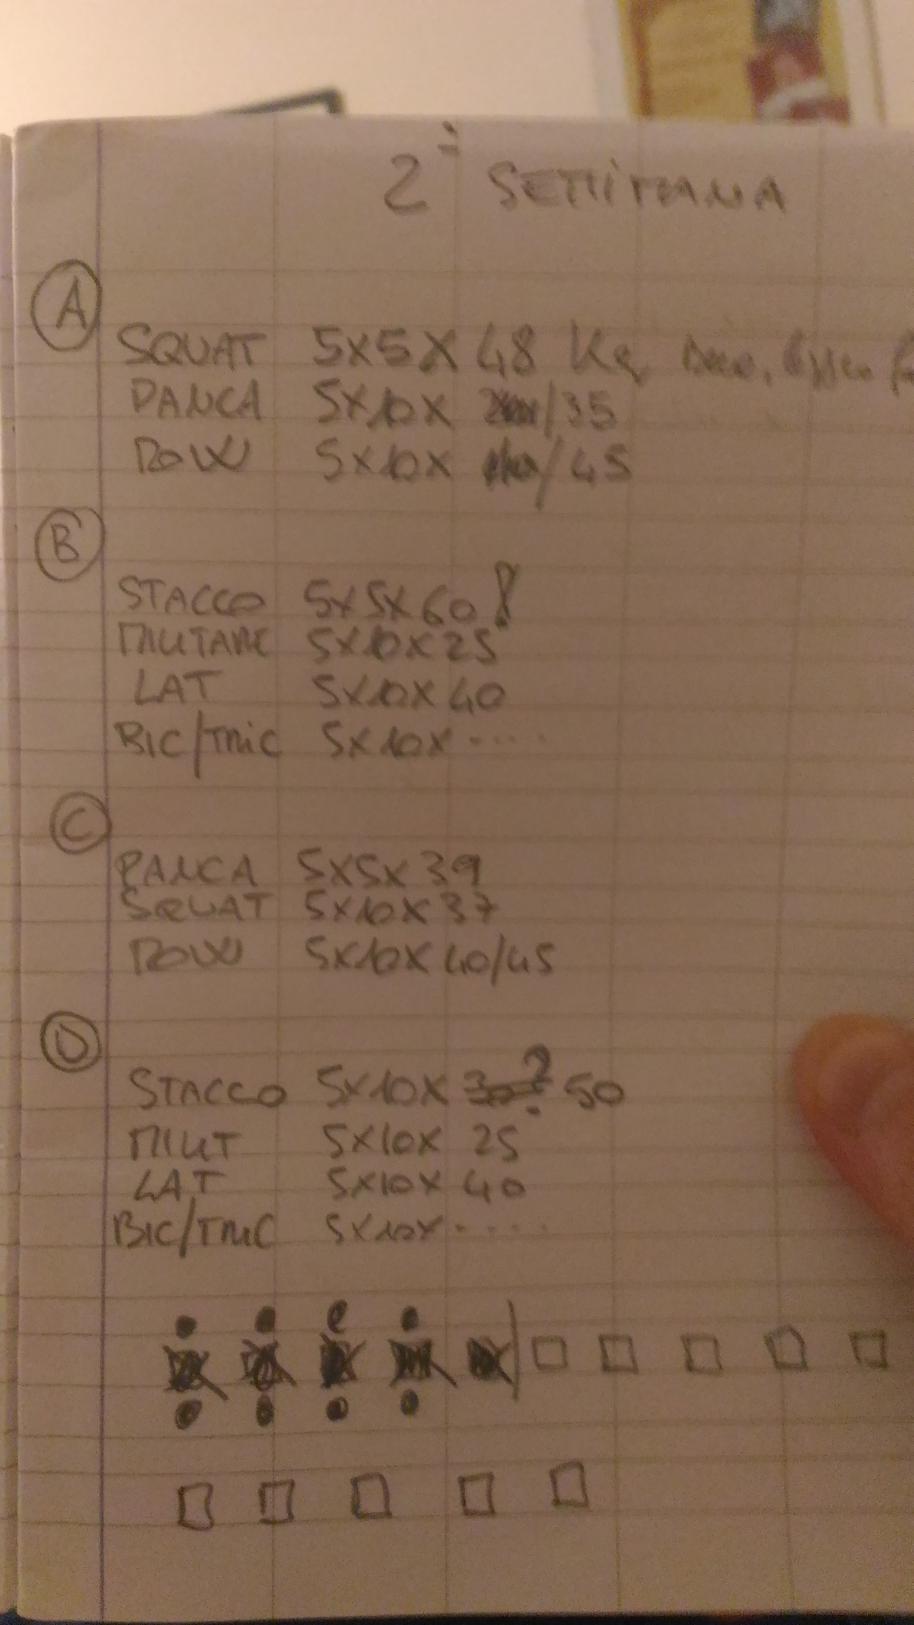 2ª SETTIMANA
A
SQUAT 5x5x48 Kg
PANCA 5x10x /35
ROW 5x10x /45
B
STACCO 5x5x60!
MILITARE 5x10x25
LAT 5x10x40
BIC/TRIC 5x10x.....
C
PANCA 5x5x39
SQUAT 5x10x37
ROW 5x10x40/45
D
STACCO 5x10x 50
MILIT 5x10x 25
LAT 5x10x 40
BIC/TRIC 5x10x.....